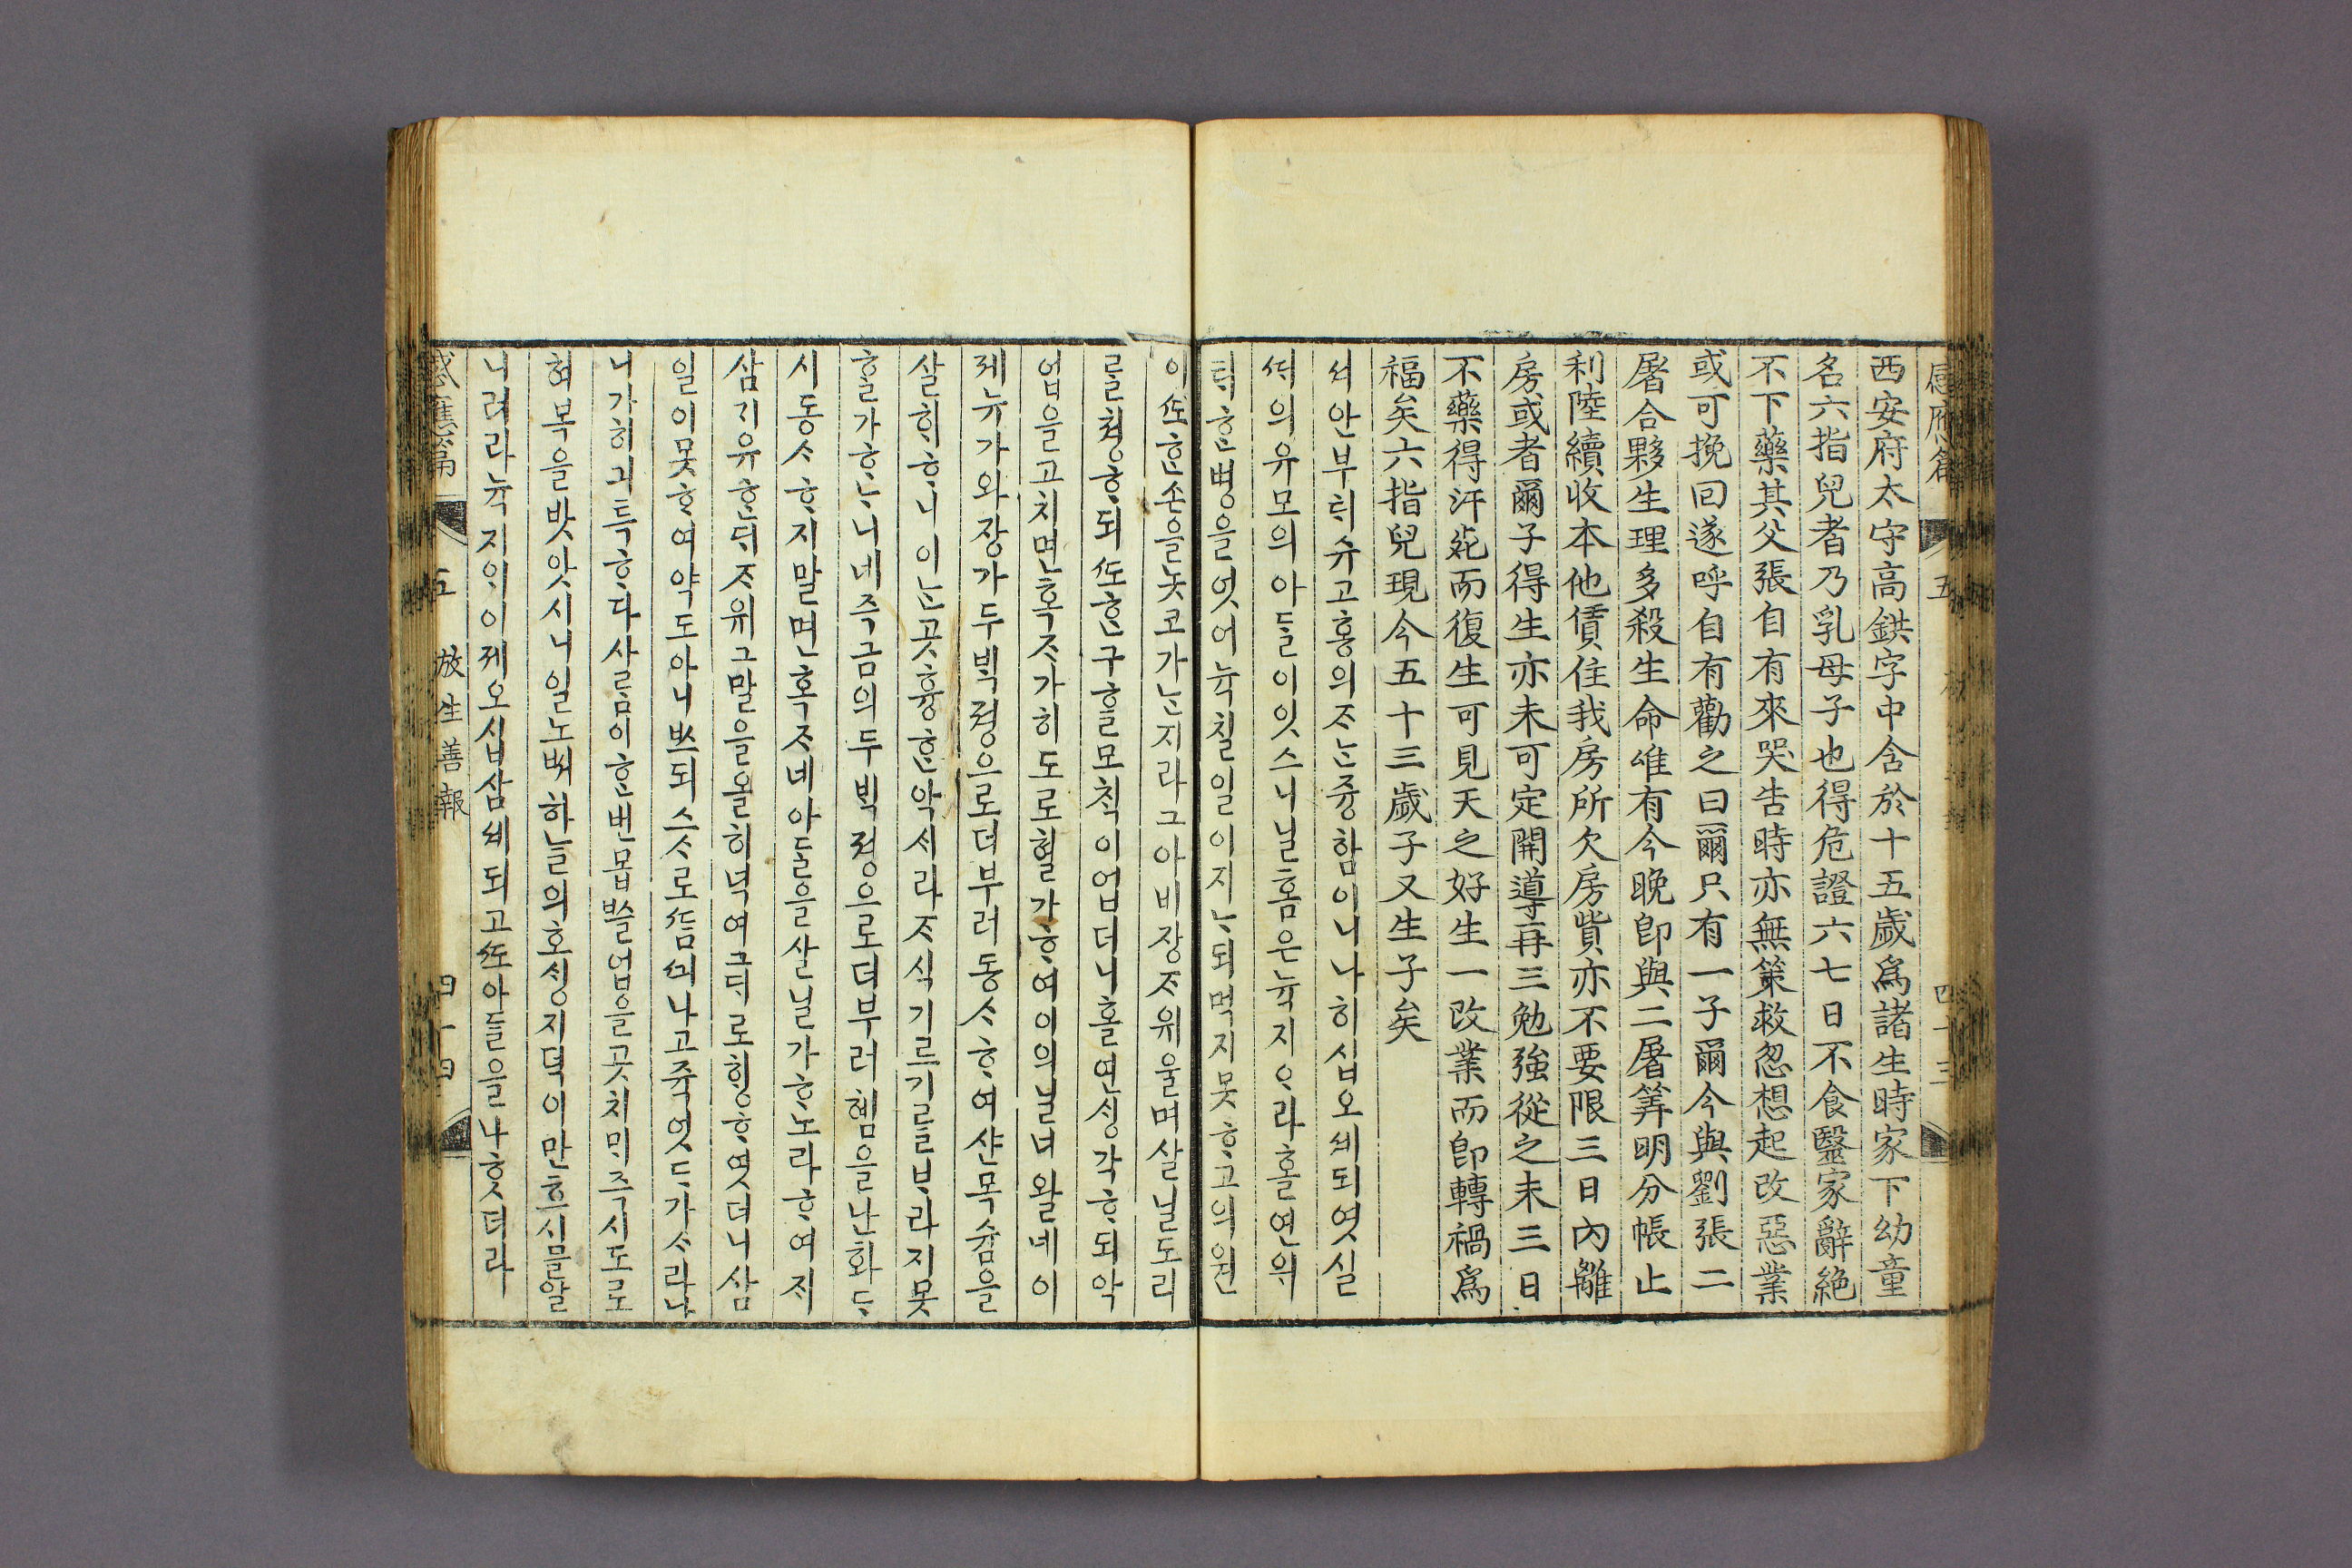 西安府太守高鉷字中含於十五歲爲諸生時家下幼童
名六指兒者乃乳母子也得危證六七日不食醫家辭絶
不下藥其父張自有來哭告時亦無策救忽想起改惡業
或可挽回遂呼自有勸之曰爾只有一子爾今與劉張二
屠合夥生理多殺生命唯有今晚卽與二屠筭明分帳止
利陸續收本他賃住我房所欠房貲亦不要限三日內離
房或者爾子得生亦未可定開導再三勉強從之未三日
不藥得汗死而復生可見天之好生一改業而卽轉禍爲
福矣六指兒現今五十三歲子又生子矣
셔안부틱슈고홍의ᄌᆞᄂᆞᆫ즁함이니나히십오셰되엿실
ᄯᆡ의유모의아들이잇스니닐홈은뉵지ᄋᆞ라홀연위
ᄐᆡᄒᆞᆫ병을엇어뉵칠일이지ᄂᆞ되먹지못ᄒᆞ고의원
이ᄯᅩᄒᆞᆫ손을놋코가ᄂᆞᆫ지라그아비장ᄌᆞ위울며살닐도리
를쳥ᄒᆞ되ᄯᅩᄒᆞᆫ구ᄒᆞᆯ모ᄎᆡᆨ이업더니홀연ᄉᆡᆼ각ᄒᆞ되악
업을고치면혹ᄌᆞ가히도로혈가ᄒᆞ여이의닐너왈네이
졔뉴가와장가두ᄇᆡᆨ졍으로더부러동ᄉᆞᄒᆞ여샨목슘을
살ᄒᆡᄒᆞ니이ᄂᆞᆫ곳흉ᄒᆞᆫ악ᄉᆡ라ᄌᆞ식기르기를ᄇᆞ라지못
ᄒᆞᆯ가ᄒᆞᄂᆞ니네즉금의두ᄇᆡᆨ졍으로더부러혬을난화ᄃᆞ
시동ᄉᆞᄒᆞ지말면혹ᄌᆞ네아들을살닐가ᄒᆞ노라ᄒᆞ여ᄌᆡ
삼기유ᄒᆞᆫᄃᆡᄌᆞ위그말을올히녁여그ᄃᆡ로ᄒᆡᆼᄒᆞ엿더니삼
일이못ᄒᆞ여약도아니ᄡᅳ되스ᄉᆞ로ᄯᆞᆷᄂᆡ나고죽엇ᄃᆞ가ᄉᆞ라나
니가히긔특ᄒᆞ다사ᄅᆞᆷ이ᄒᆞᆫ번몹쓸업을곳치ᄆᆡ즉시도로
혀복을밧앗시니일노ᄡᅥ하늘의호ᄉᆡᆼ지덕이만흐시믈알
니러라뉵지ᄋᆞ이졔오십삼셰되고ᄯᅩ아들을나흣더라
感應篇
五
放生善報
四十四